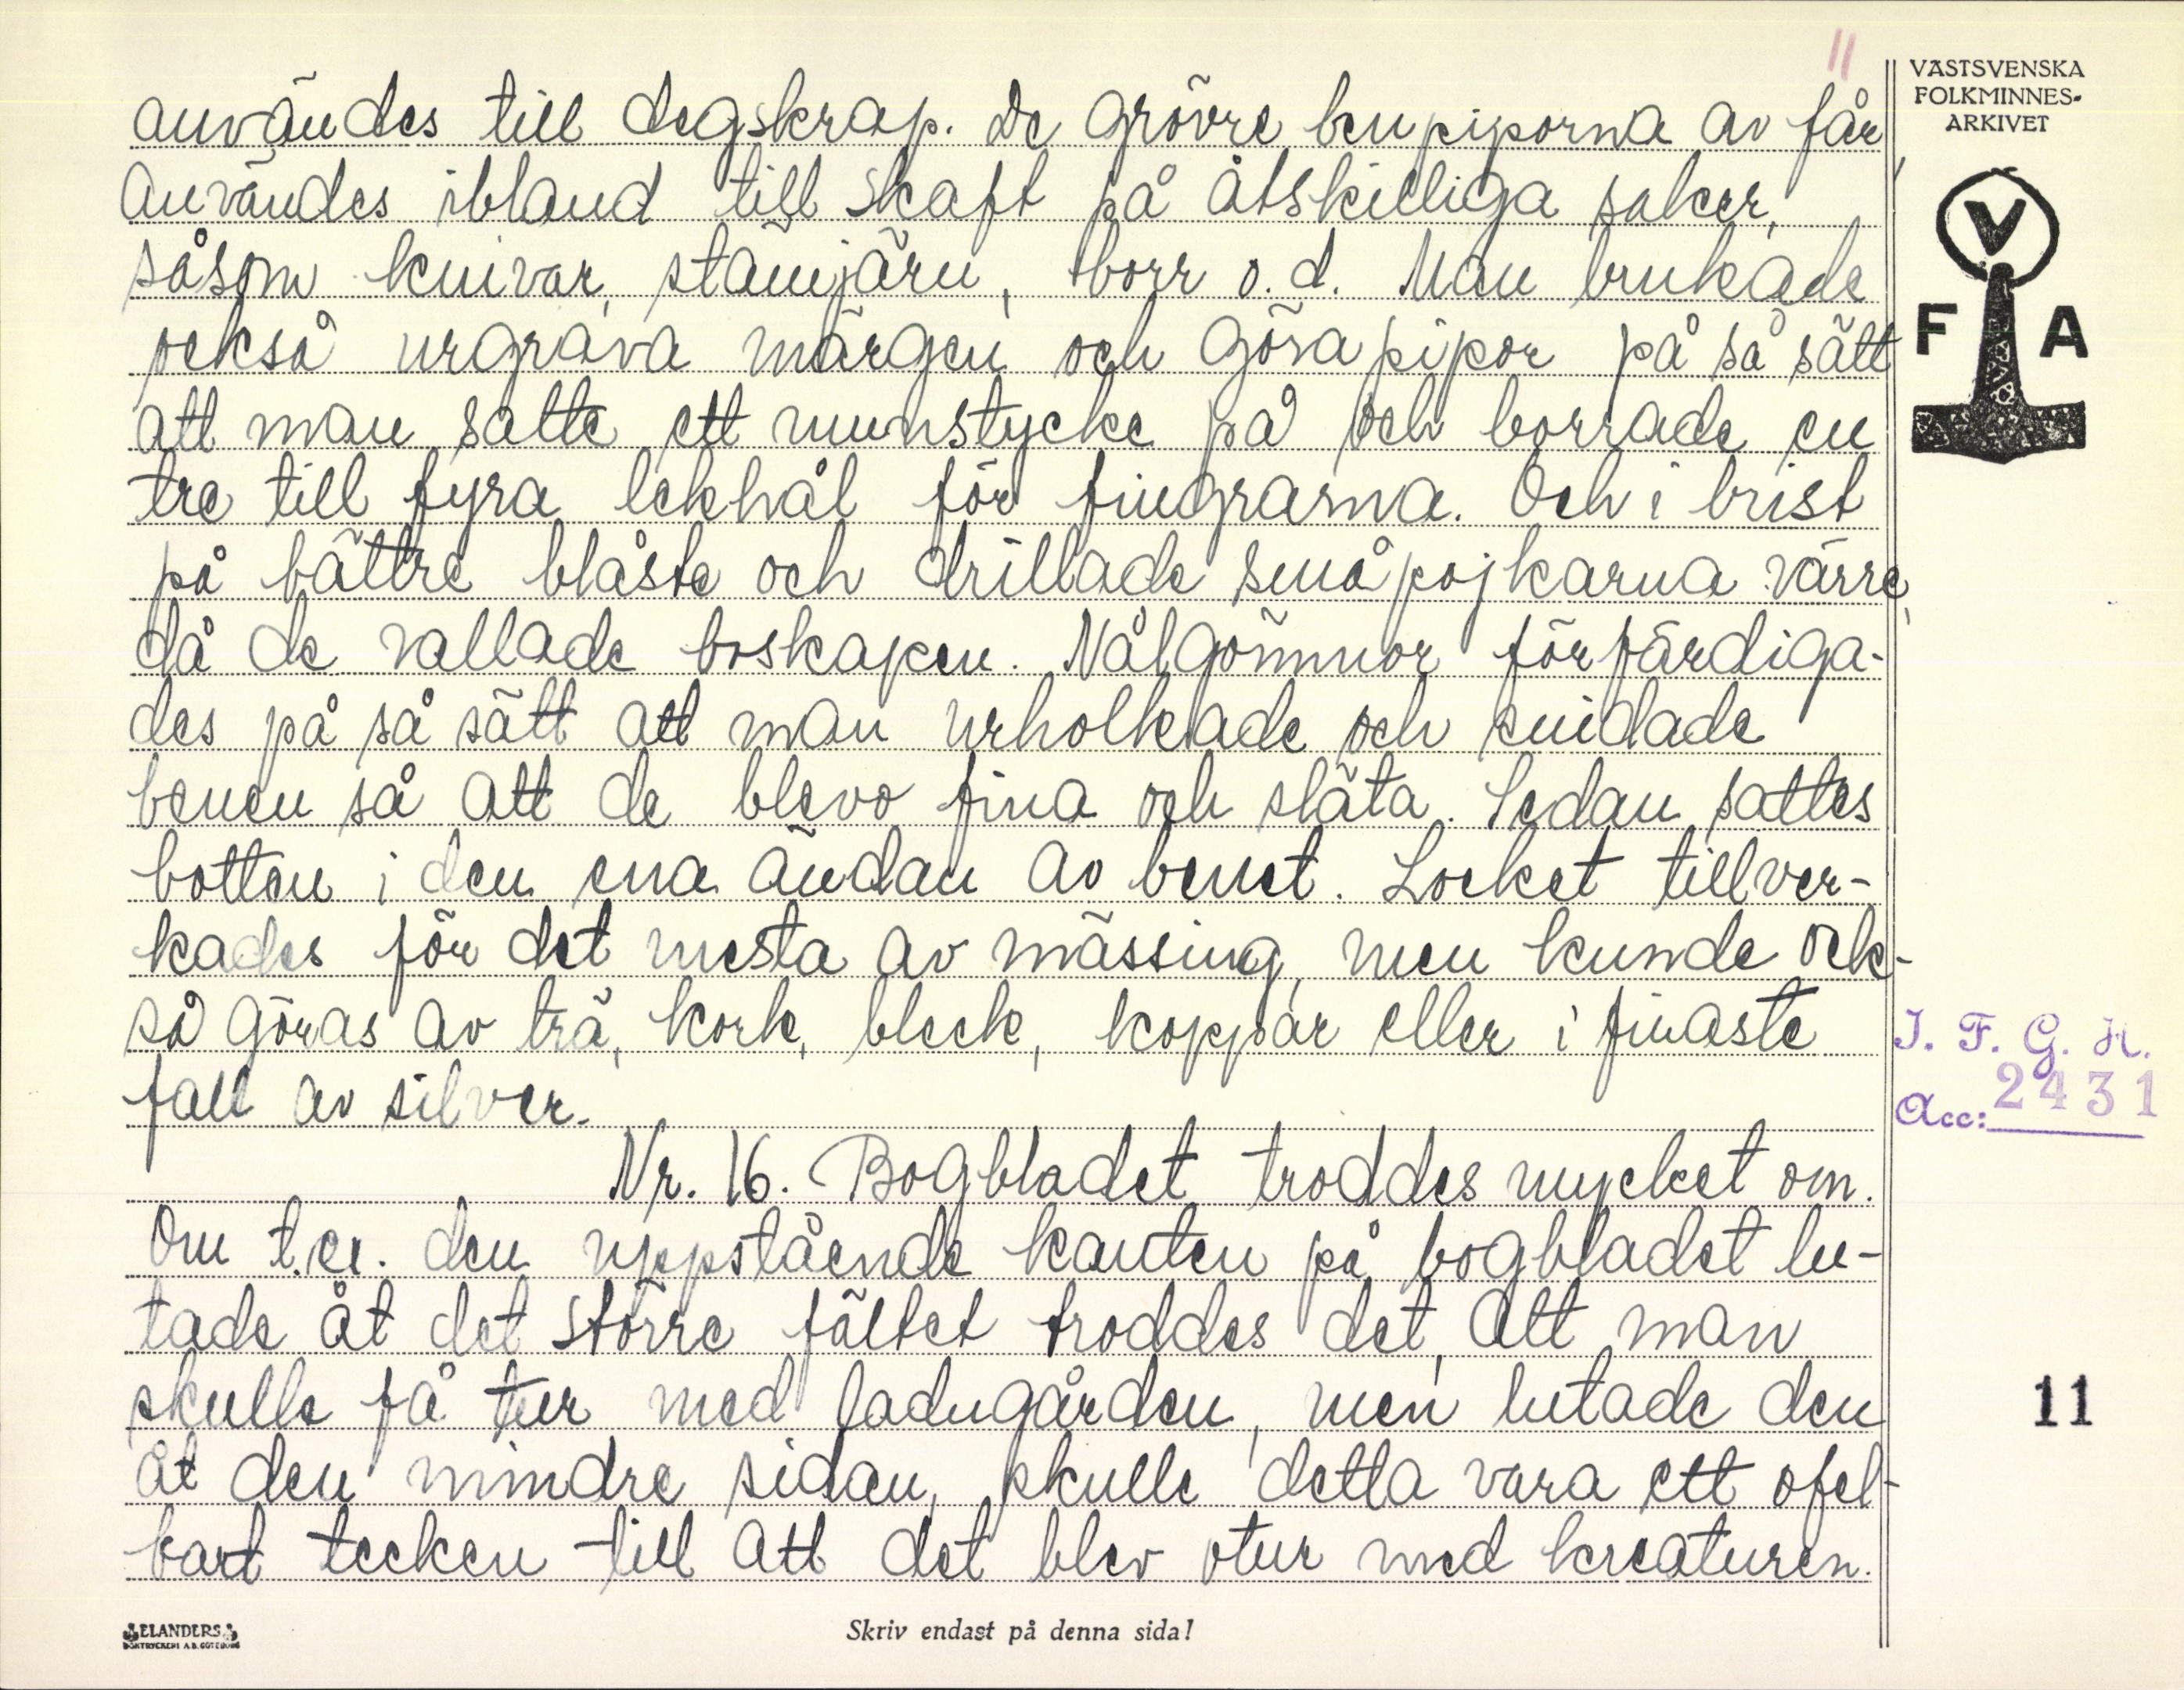 11
VÄSTSVENSKA
FOLKMINNES-
ARKIVET
V
F A
användes till degskrap. De grövre benpiporna av får
användes ibland till skaft på åtskilliga saker,
såsom knivar, stämjärn, borr o.d. Man brukade
också urgräva märgen och göra pipor på så sätt
att man satte ett munstycke på och borrade en
tre till fyra lekhål för fingrarna. Och i brist
på bättre blåste och drillade småpojkarna värre,
då de vallade boskapen. Nålgömmor förfärdiga-
des på så sätt att man urholkade och snidade
benen så att de blevo fina och släta. Sedan sattes
botten i den ena ändan av benet. Locket tillver-
kades för det mesta av mässing, men kunde ock-
så göras av trä, kork, bleck, koppar eller i finaste
fall av silver.
Nr. 16. Bogbladet troddes mycket om.
Om t.ex. den uppstående kanten på bogbladet lu-
tade åt det större fältet troddes det, att man
skulle få tur med ladugården, men lutade den
åt den mindre sidan, skulle detta vara ett ofel-
bart tecken till att det blev otur med kreaturen.
I. F. G. H.
Acc: 2431
11
ELANDERS
BOKTRYCKERI A.B. GÖTEBORG
Skriv endast på denna sida!